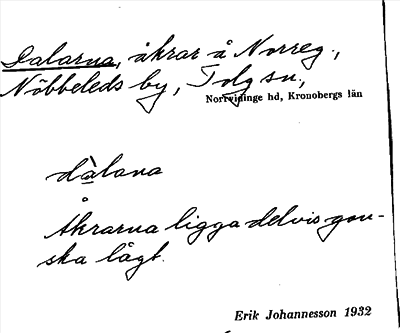 Dalarna, åkrar å Norreg.,
Nöbbeleds by, Tolg sn,
Norrvidinge hd, Kronobergs län
dàlana
Åkrarna ligga delvis gan-
ska lågt.
Erik Johannesson 1932